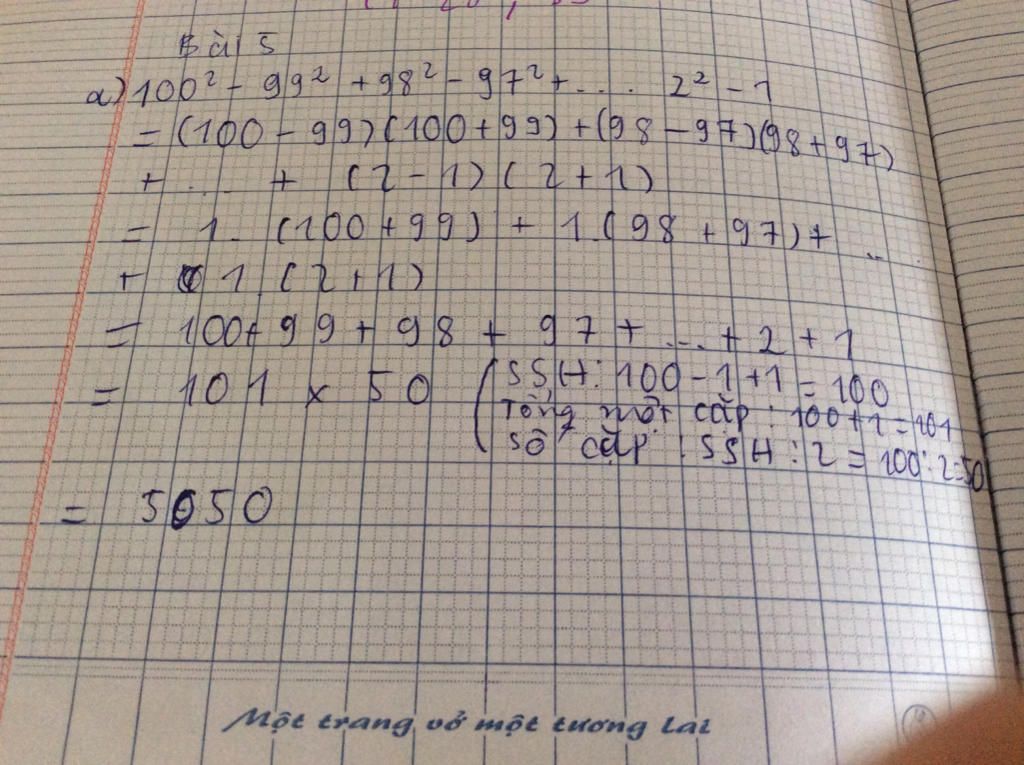 Bài 5
a) 100² - 99² + 98² - 97² + .... 2² - 1
= (100 - 99)(100 + 99) + (98 - 97)(98 + 97)
+ ... + (2 - 1)(2 + 1)
= 1. (100 + 99) + 1.(98 + 97) + ..
+ 1 (2 + 1)
= 100 + 99 + 98 + 97 + ... + 2 + 1
= 101 x 50
(SSH: 100 - 1 + 1 = 100
Tổng một cặp : 100 + 1 = 101
Số cặp : SSH : 2 = 100 : 2 = 50
= 5050
Một trang vở một tương lai